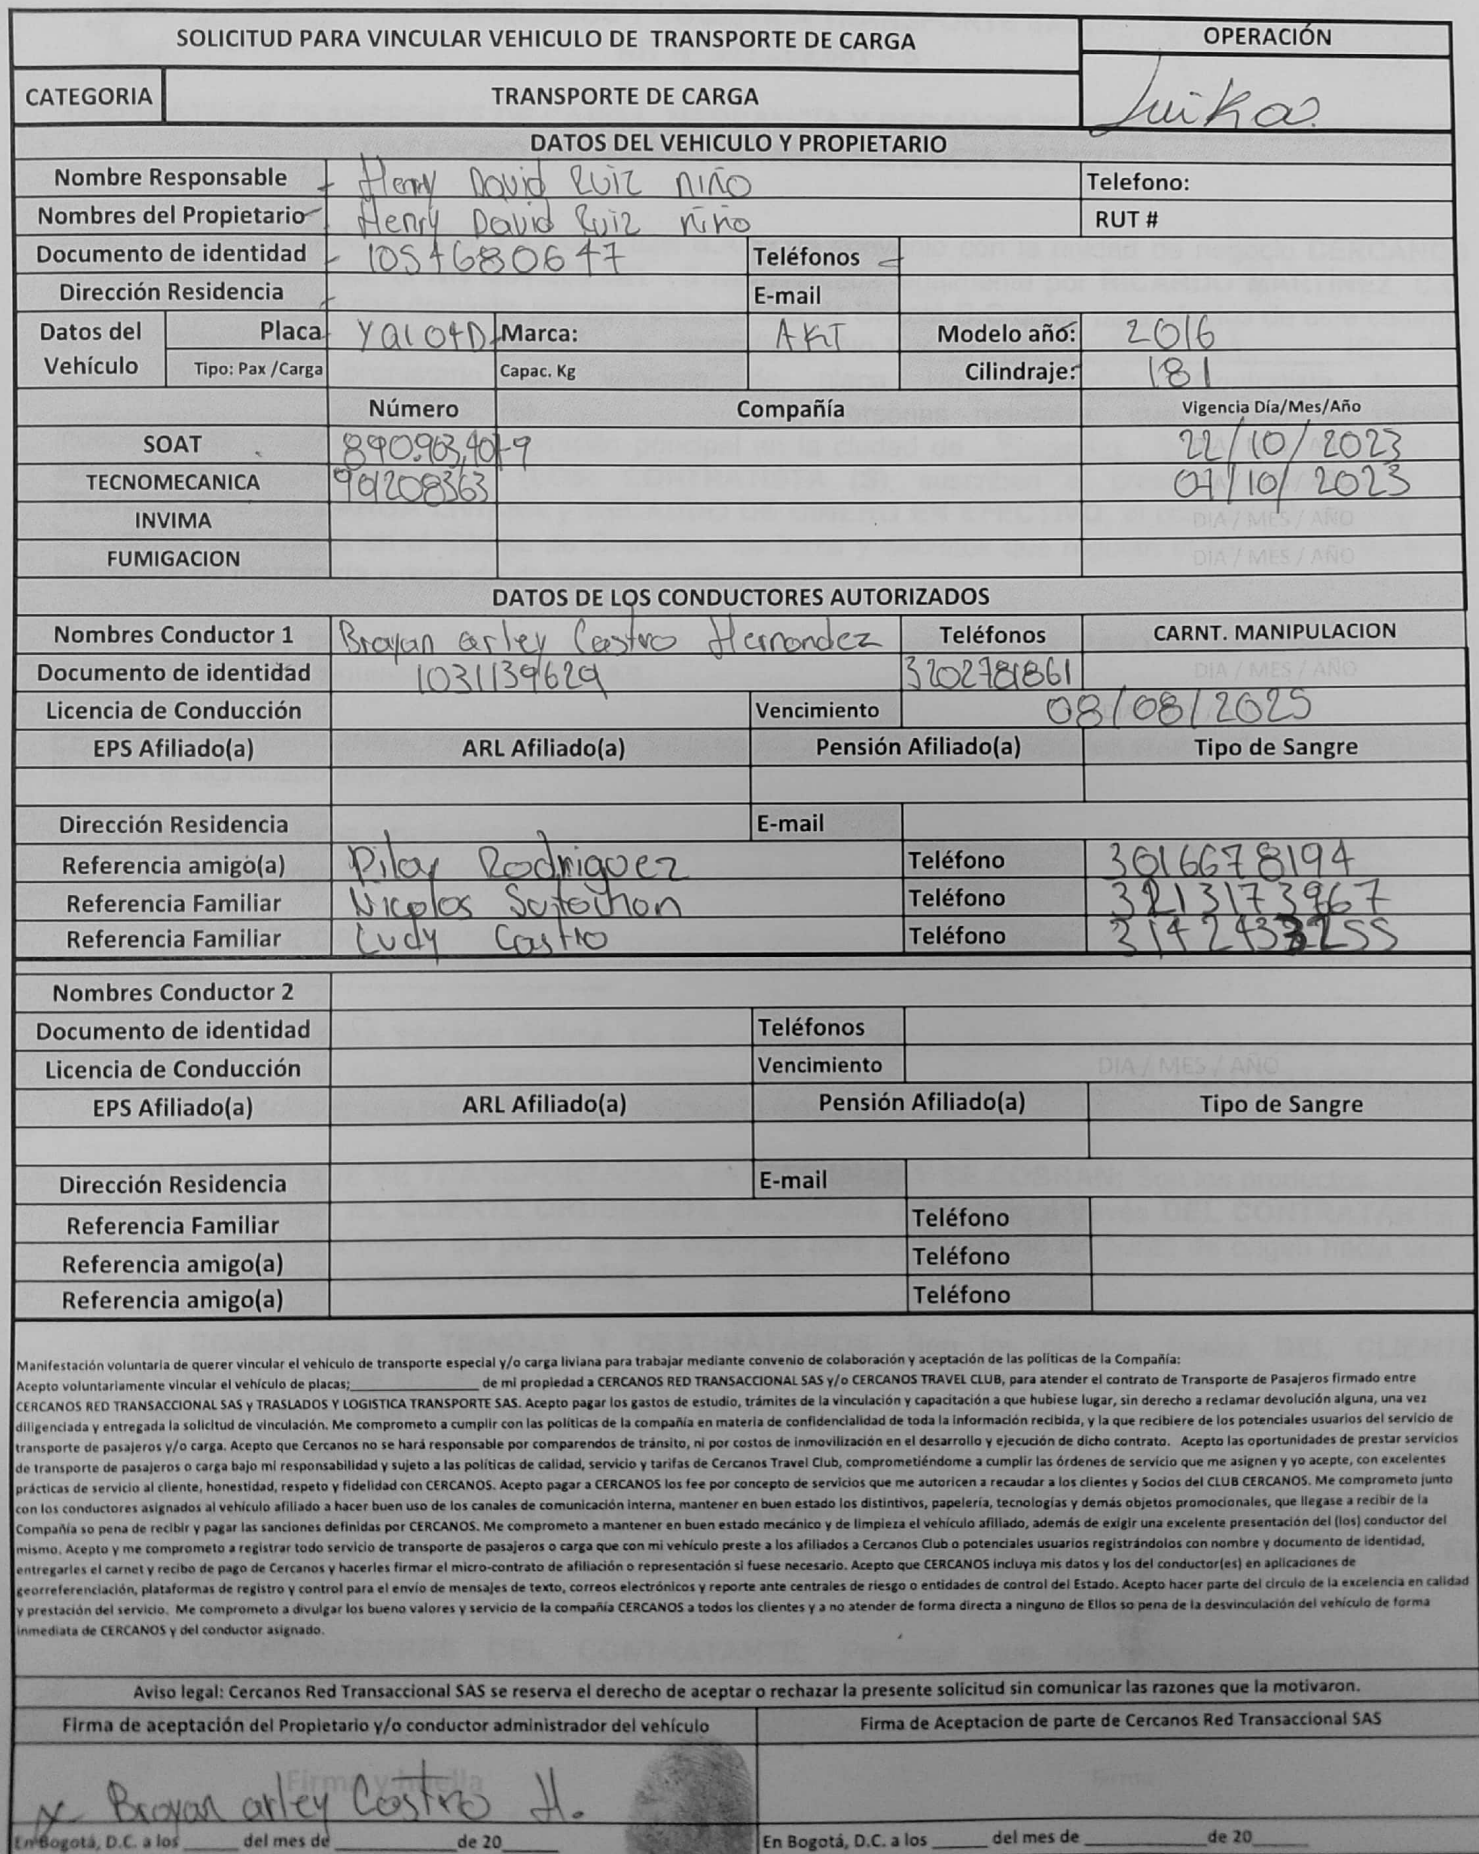 SOLICITUD PARA VINCULAR VEHICULO DE TRANSPORTE DE CARGA
OPERACIÓN
CATEGORIA TRANSPORTE DE CARGA
DATOS DEL VEHICULO Y PROPIETARIO
Nombre Responsable Henry David Ruiz niño Telefono:
Nombres del Propietario Henry David Ruiz niño RUT #
Documento de identidad Teléfonos
Dirección Residencia E-mail
Datos del Vehículo Placa Marca: AKT Modelo año: 2016
Tipo: Pax /Carga Capac. Kg Cilindraje: 181
Número Compañía Vigencia Día/Mes/Año
SOAT 22/10/2023
TECNOMECANICA 901208363 07/10/2023
INVIMA DIA / MES / AÑO
FUMIGACION DIA / MES / AÑO
DATOS DE LOS CONDUCTORES AUTORIZADOS
Nombres Conductor 1 Brayan arley Castro Hernandez Teléfonos CARNT. MANIPULACION
Documento de identidad 1031139629 3202781861 DIA / MES / AÑO
Licencia de Conducción Vencimiento 08/08/2025
EPS Afiliado(a) ARL Afiliado(a) Pensión Afiliado(a) Tipo de Sangre
Dirección Residencia E-mail
Referencia amigo(a) Pilar Rodriguez Teléfono 3016678194
Referencia Familiar Nicolas Teléfono
Referencia Familiar Ludy Castro Teléfono
Nombres Conductor 2
Documento de identidad Teléfonos
Licencia de Conducción Vencimiento DIA / MES / AÑO
EPS Afiliado(a) ARL Afiliado(a) Pensión Afiliado(a) Tipo de Sangre
Dirección Residencia E-mail
Referencia Familiar Teléfono
Referencia amigo(a) Teléfono
Referencia amigo(a) Teléfono
Manifestación voluntaria de querer vincular el vehículo de transporte especial y/o carga liviana para trabajar mediante convenio de colaboración y aceptación de las políticas de la Compañía:
Acepto voluntariamente vincular el vehículo de placas;______________ de mi propiedad a CERCANOS RED TRANSACCIONAL SAS y/o CERCANOS TRAVEL CLUB, para atender el contrato de Transporte de Pasajeros firmado entre
CERCANOS RED TRANSACCIONAL SAS y TRASLADOS Y LOGISTICA TRANSPORTE SAS. Acepto pagar los gastos de estudio, trámites de la vinculación y capacitación a que hubiese lugar, sin derecho a reclamar devolución alguna, una vez
diligenciada y entregada la solicitud de vinculación. Me comprometo a cumplir con las políticas de la compañía en materia de confidencialidad de toda la información recibida, y la que recibiere de los potenciales usuarios del servicio de
transporte de pasajeros y/o carga. Acepto que Cercanos no se hará responsable por comparendos de tránsito, ni por costos de inmovilización en el desarrollo y ejecución de dicho contrato. Acepto las oportunidades de prestar servicios
de transporte de pasajeros o carga bajo mi responsabilidad y sujeto a las políticas de calidad, servicio y tarifas de Cercanos Travel Club, comprometiéndome a cumplir las órdenes de servicio que me asignen y yo acepte, con excelentes
prácticas de servicio al cliente, honestidad, respeto y fidelidad con CERCANOS. Acepto pagar a CERCANOS los fee por concepto de servicios que me autoricen a recaudar a los clientes y Socios del CLUB CERCANOS. Me comprometo junto
con los conductores asignados al vehículo afiliado a hacer buen uso de los canales de comunicación interna, mantener en buen estado los distintivos, papelería, tecnologías y demás objetos promocionales, que llegase a recibir de la
Compañía so pena de recibir y pagar las sanciones definidas por CERCANOS. Me comprometo a mantener en buen estado mecánico y de limpieza el vehículo afiliado, además de exigir una excelente presentación del (los) conductor del
mismo. Acepto y me comprometo a registrar todo servicio de transporte de pasajeros o carga que con mi vehículo preste a los afiliados a Cercanos Club o potenciales usuarios registrándolos con nombre y documento de identidad,
entregarles el carnet y recibo de pago de Cercanos y hacerles firmar el micro-contrato de afiliación o representación si fuese necesario. Acepto que CERCANOS incluya mis datos y los del conductor(es) en aplicaciones de
georreferenciación, plataformas de registro y control para el envío de mensajes de texto, correos electrónicos y reporte ante centrales de riesgo o entidades de control del Estado. Acepto hacer parte del circulo de la excelencia en calidad
y prestación del servicio. Me comprometo a divulgar los bueno valores y servicio de la compañía CERCANOS a todos los clientes y a no atender de forma directa a ninguno de Ellos so pena de la desvinculación del vehículo de forma
inmediata de CERCANOS y del conductor asignado.
Aviso legal: Cercanos Red Transaccional SAS se reserva el derecho de aceptar o rechazar la presente solicitud sin comunicar las razones que la motivaron.
Firma de aceptación del Propietario y/o conductor administrador del vehículo Firma de Aceptacion de parte de Cercanos Red Transaccional SAS
Firma y huella Firma
x Brayan arley Castro H.
En Bogotá, D.C. a los ______ del mes de __________ de 20______ En Bogotá, D.C. a los ______ del mes de __________ de 20______